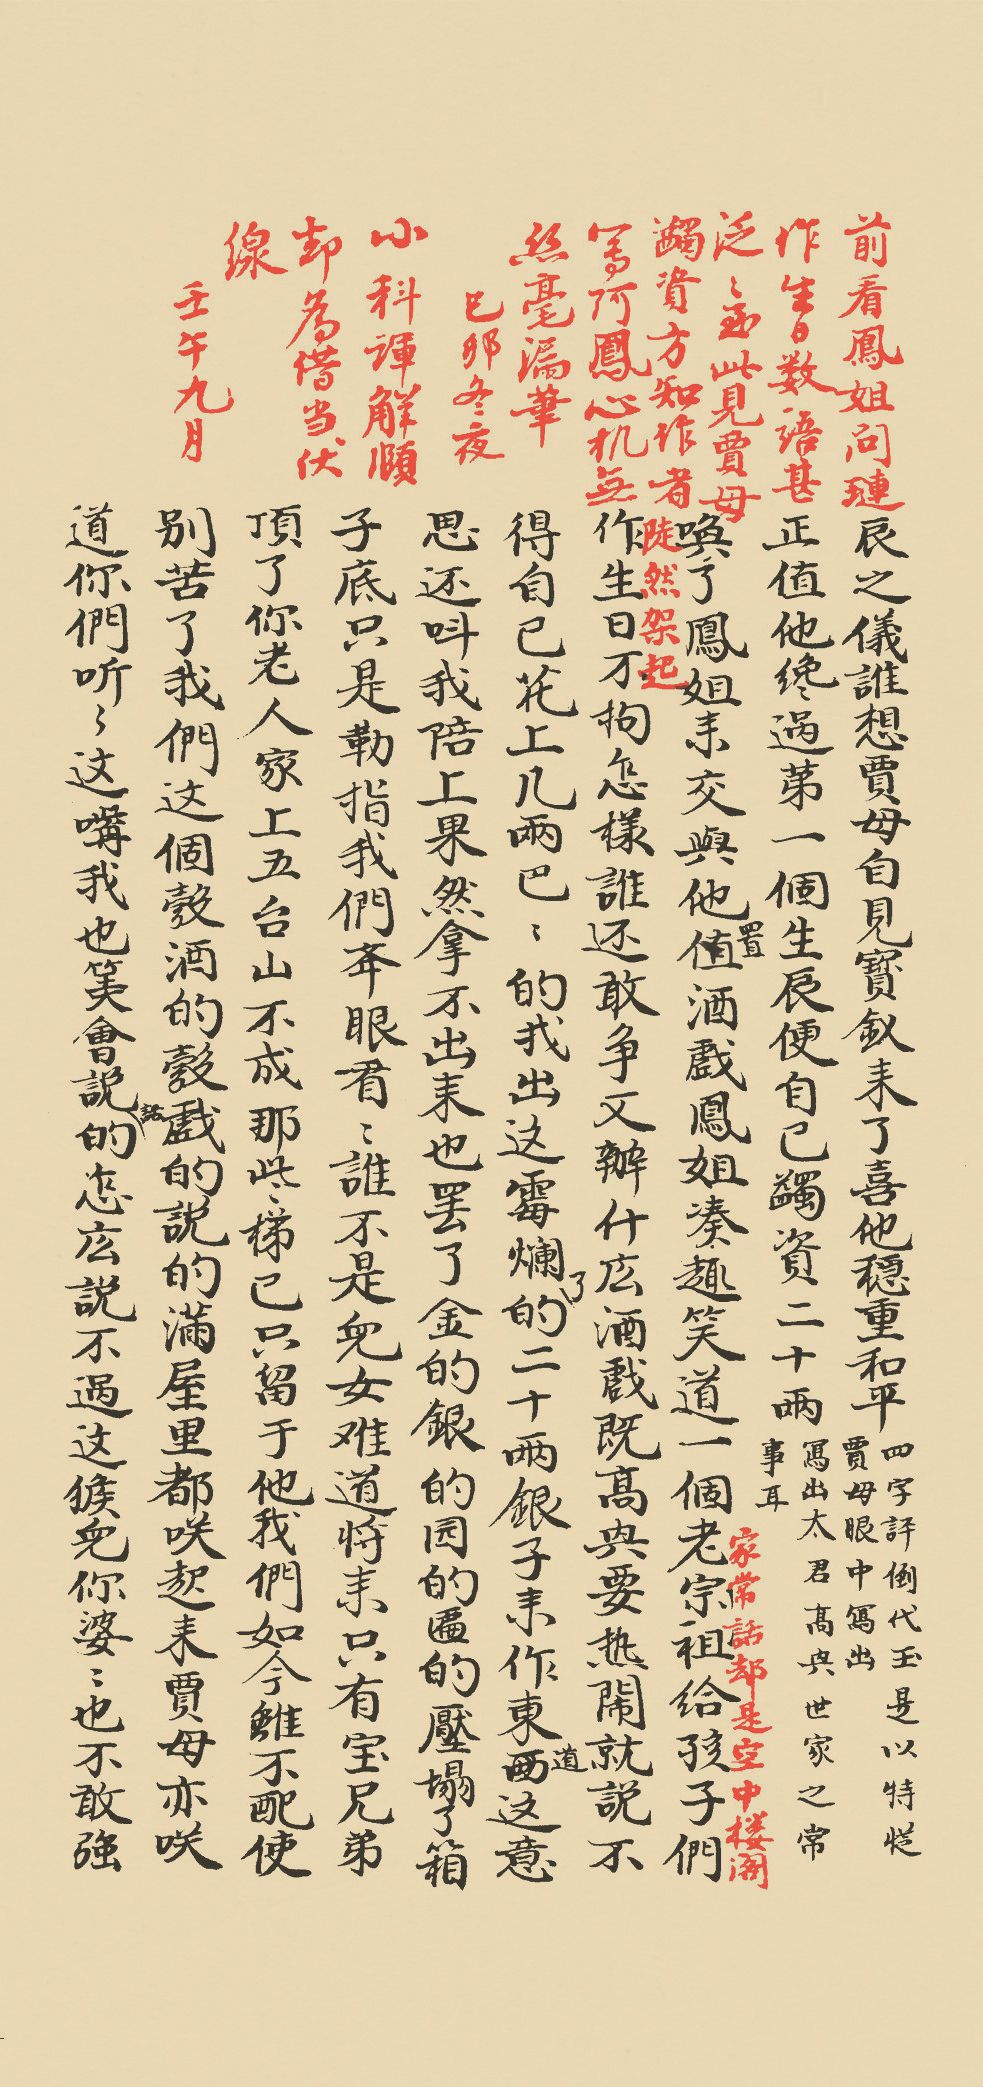 前看鳳姐问璉
作生日数语甚
泛〻至此見賈母
蠲資方知作者
寫阿鳳心机無
丝毫漏筆
己卯冬夜
小科諢解頤
却為借当伏
線
壬午九月
辰之儀誰想賈母自見寳釵来了喜他穩重和平
四字評倒代玉是以特從
賈母眼中寫出
正值他纔過苐一個生辰便自己蠲資二十兩
寫出太君高兴世家之常
事耳
家常話却是空中楼阁
喚了鳳姐来交與他值酒戲鳳姐凑趣笑道一個老宗祖给孩子們
置
陡然架起
作生日不拘怎樣誰还敢争又辦什広酒戲既高兴要热鬧就説不
得自己花上几兩巴〻的我出这霉爛的二十兩銀子来作東西这意
了
道
思还呌我陪上果然拿不出来也罢了金的銀的园的匾的壓塌了箱
子底只是勒掯我們奔眼看〻誰不是兒女难道将来只有宝兄弟
頂了你老人家上五台山不成那些梯已只留于他我們如今雖不配使
别苦了我們这個彀酒的彀戲的説的满屋里都咲起来賈母亦咲
道你們听〻这嘴我也筭會説的怎広説不過这猴兒你婆〻也不敢強
話